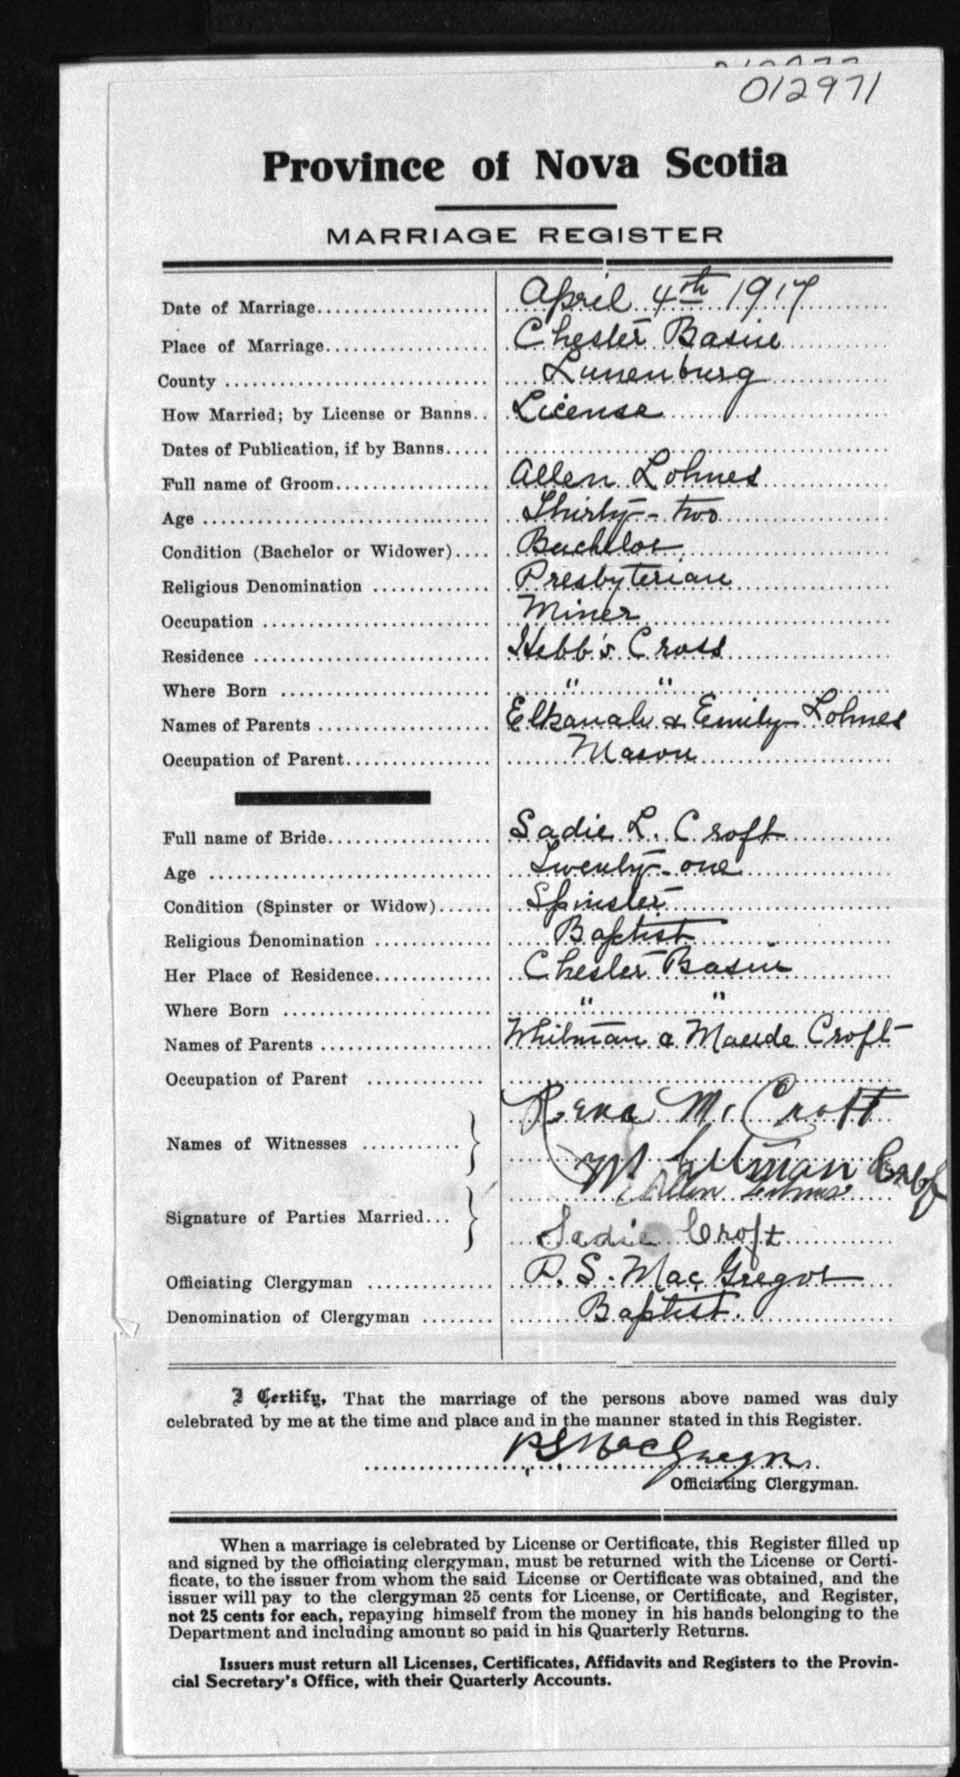 012971
Province of Nova Scotia
MARRIAGE REGISTER
Date of Marriage................... April 4th 1917
Place of Marriage.................. Chester Basin
County .............................. Lunenburg
How Married; by License or Banns.. License
Dates of Publication, if by Banns.....
Full name of Groom................. Allen Lohnes
Age ................................ Thirty-two
Condition (Bachelor or Widower).... Bachelor
Religious Denomination ............. Presbyterian
Occupation ......................... Miner
Residence .......................... Hebb's Cross
Where Born ....................... " "
Names of Parents ................... Elkanah & Emily Lohnes
Occupation of Parent................ Mason
Full name of Bride.................. Sadie L. Croft
Age ............................... Twenty-one
Condition (Spinster or Widow)...... Spinster
Religious Denomination ............. Baptist
Her Place of Residence............. Chester Basin
Where Born ....................... " "
Names of Parents ................... Whitman & Maude Croft
Occupation of Parent ..............
Names of Witnesses ........... } Rena M. Croft
Whitman Croft
Signature of Parties Married... } Allen Lohnes
Sadie Croft
Officiating Clergyman .............. P. S. MacGregor
Denomination of Clergyman ........ Baptist.
I Certify, That the marriage of the persons above named was duly
celebrated by me at the time and place and in the manner stated in this Register.
P S MacGregor
Officiating Clergyman.
When a marriage is celebrated by License or Certificate, this Register filled up
and signed by the officiating clergyman, must be returned with the License or Certi-
ficate, to the issuer from whom the said License or Certificate was obtained, and the
issuer will pay to the clergyman 25 cents for License, or Certificate, and Register,
not 25 cents for each, repaying himself from the money in his hands belonging to the
Department and including amount so paid in his Quarterly Returns.
Issuers must return all Licenses, Certificates, Affidavits and Registers to the Provin-
cial Secretary's Office, with their Quarterly Accounts.